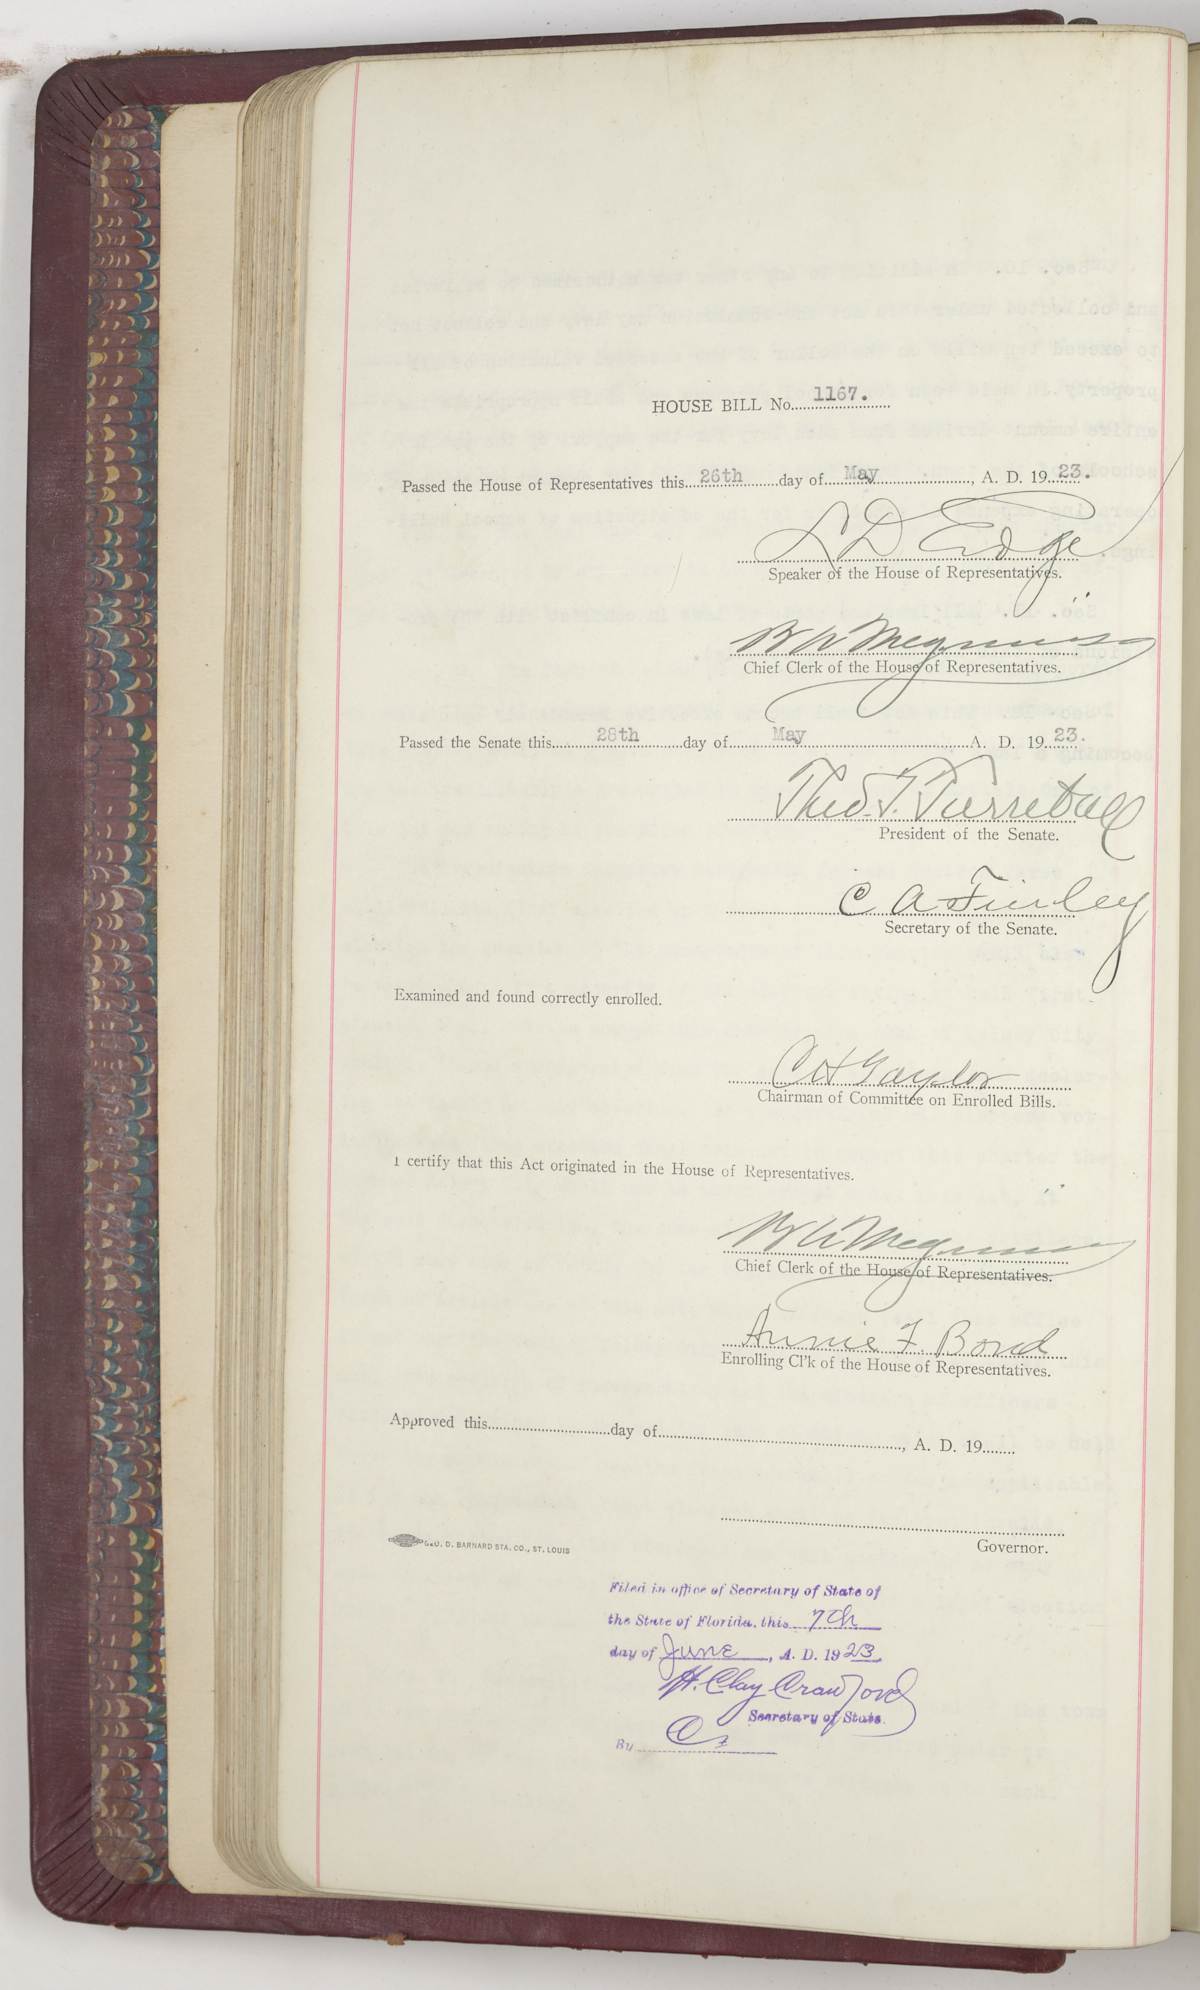 HOUSE BILL No. 1167.
Passed the House of Representatives this 26th day of May, A. D. 19 23.
L D Edge
Speaker of the House of Representatives.
B A Meginniss
Chief Clerk of the House of Representatives.
Passed the Senate this 28th day of May A. D. 19 23.
Theo. T. Turnbull
President of the Senate.
C A Finley
Secretary of the Senate.
Examined and found correctly enrolled.
C H Taylor
Chairman of Committee on Enrolled Bills.
I certify that this Act originated in the House of Representatives.
B A Meginniss
Chief Clerk of the House of Representatives.
Annie F. Bond
Enrolling Cl'k of the House of Representatives.
Approved this day of , A. D. 19
Governor.
GEO. D. BARNARD STA. CO., ST. LOUIS
Filed in office of Secretary of State of
the State of Florida, this 7th
day of June, A. D. 19 23
H. Clay Crawford
Secretary of State.
By